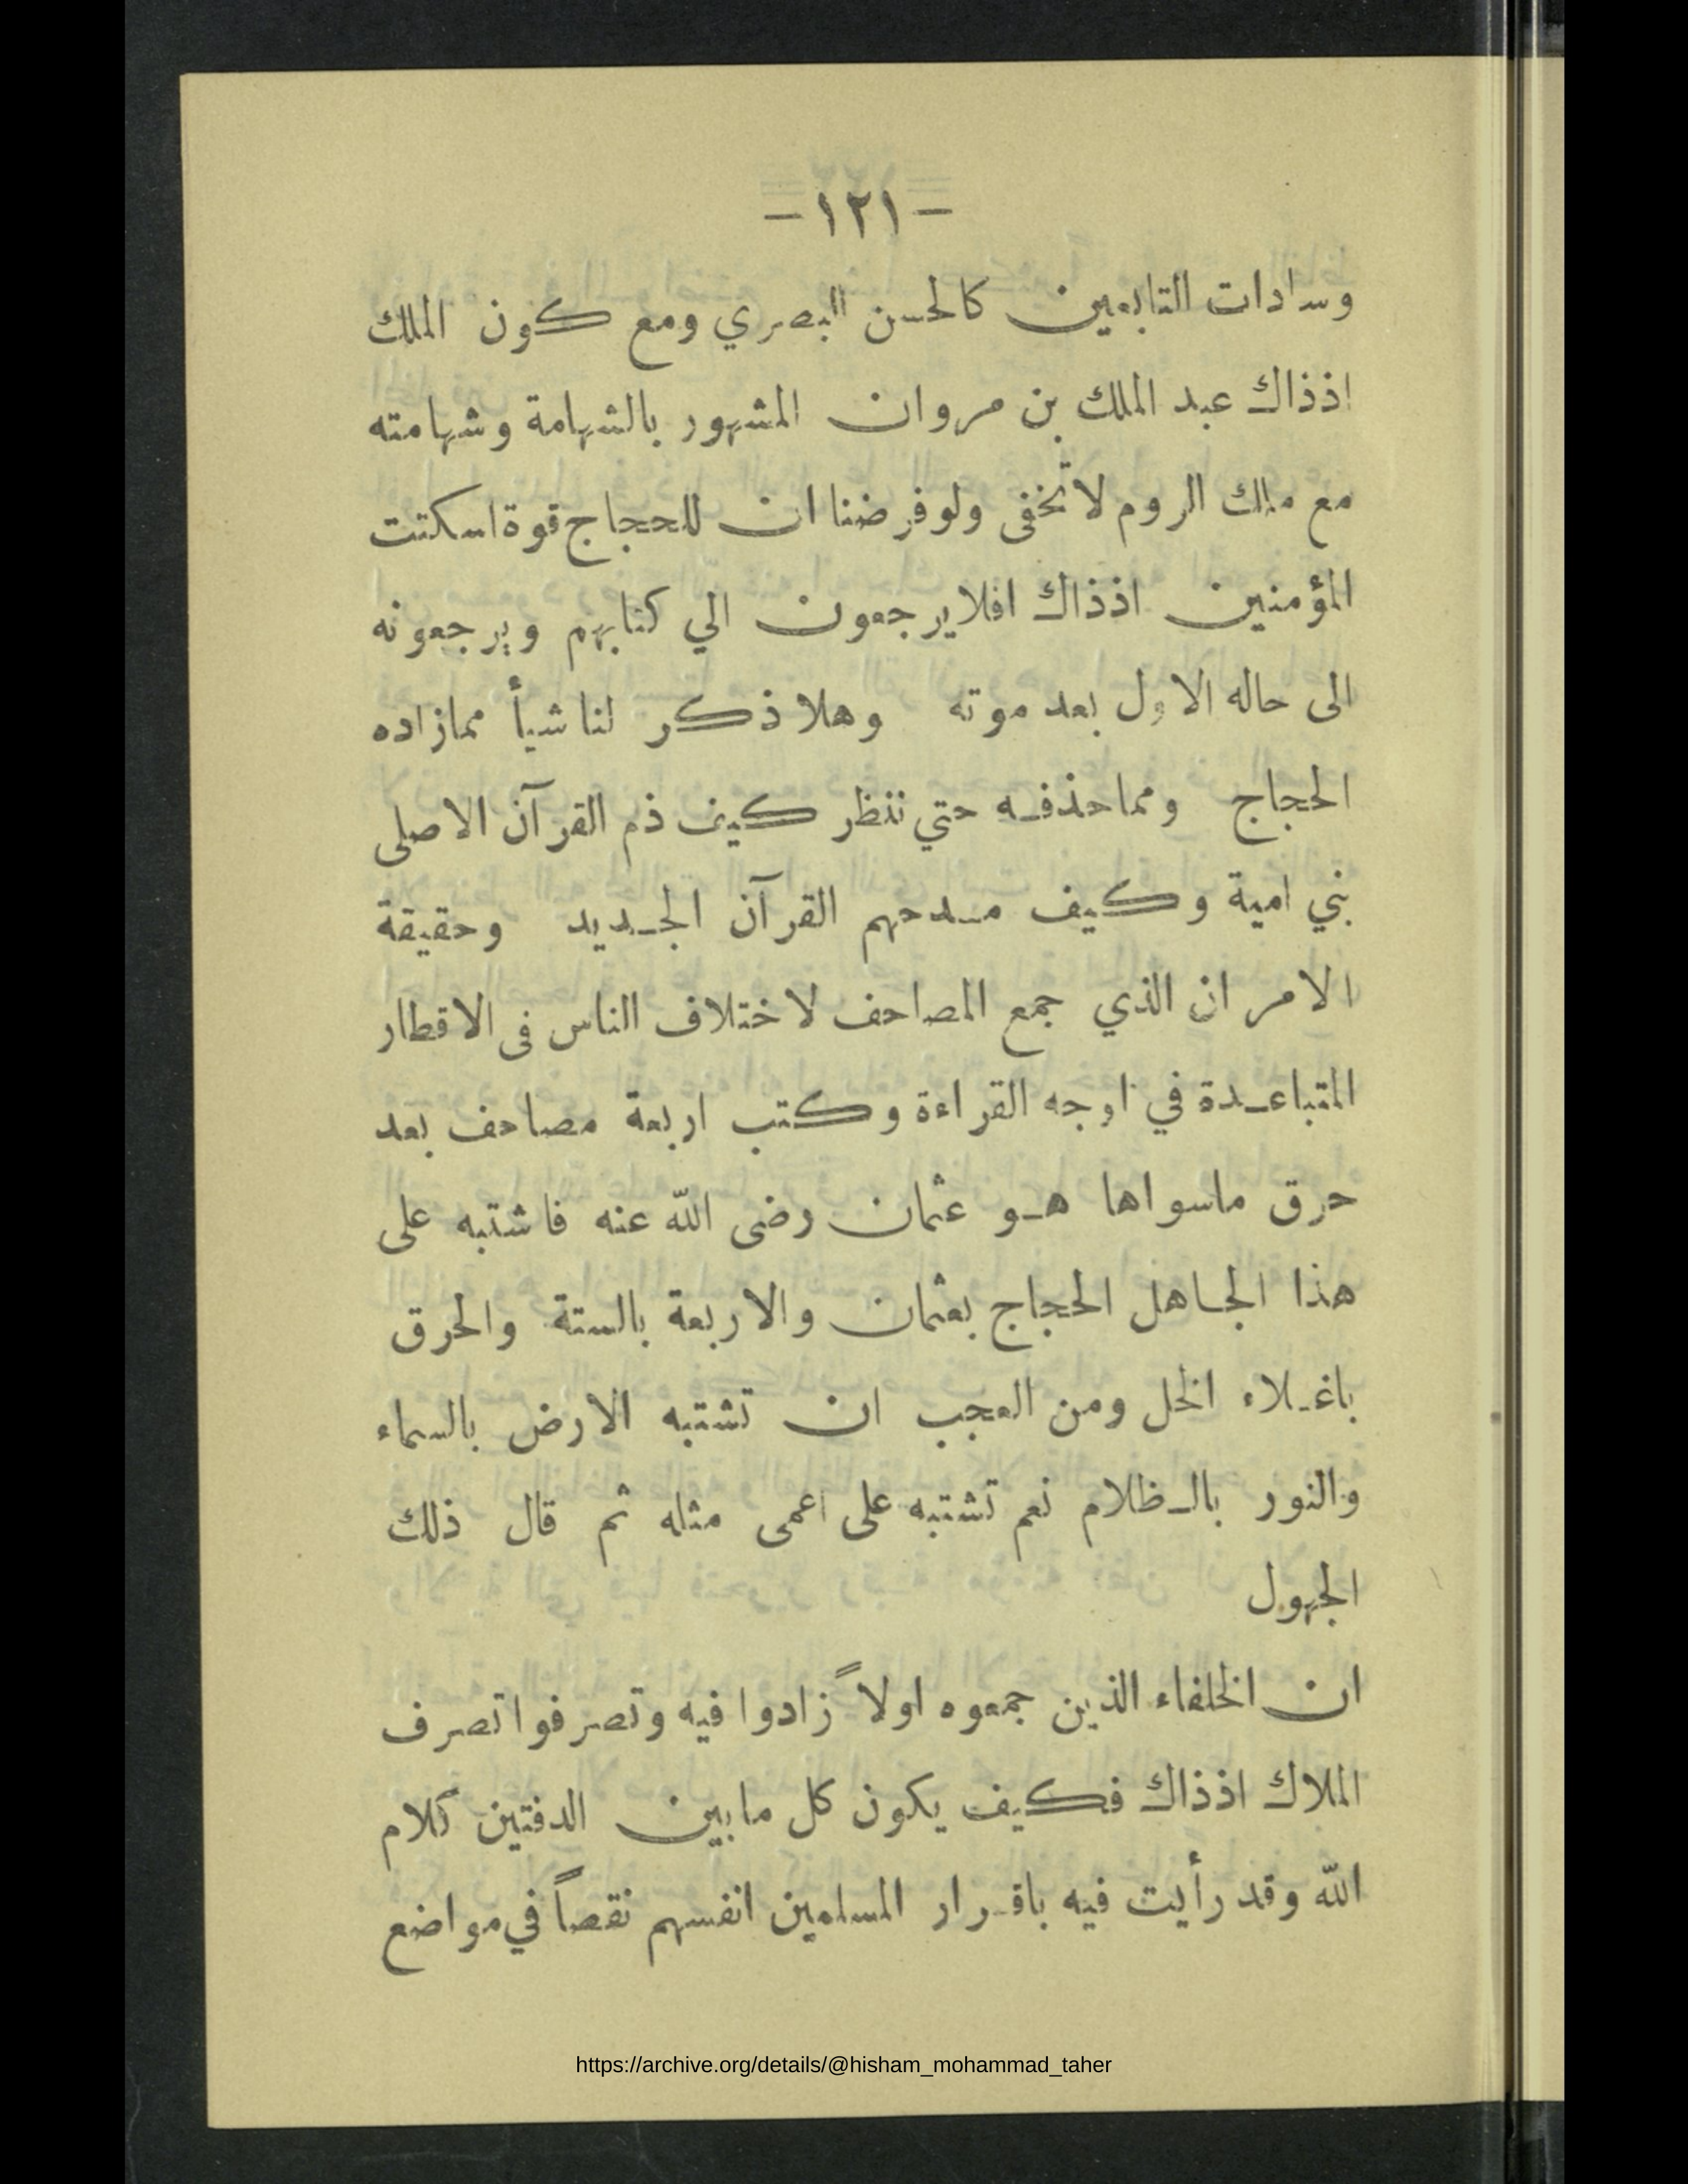 - ١٢١ -
وسادات التابعين كالحسن البصري ومع كون الملك
اذذاك عبد الملك بن مروان المشهور بالشهامة وشهامته
مع ملك الروم لاتخفى ولوفرضنا ان للحجاج قوة اسكتت
المؤمنين اذذاك افلايرجعون الي كتابهم ويرجعونه
الى حاله الاول بعد موته وهلا ذكر لنا شيأ ممازاده
الحجاج ومماحذفه حتي ننظر كيف ذم القرآن الاصلى
بني امية وكيف مدحهم القرآن الجديد وحقيقة
الامر ان الذي جمع المصاحف لاختلاف الناس فى الاقطار
المتباعدة في اوجه القراءة وكتب اربعة مصاحف بعد
حرق ماسواها هو عثمان رضى الله عنه فاشتبه على
هذا الجاهل الحجاج بعثمان والاربعة بالستة والحرق
باغلاء الخل ومن العجب ان تشتبه الارض بالسماء
والنور بالظلام نعم تشتبه على اعمى مثله ثم قال ذلك
الجهول
ان الخلفاء الذين جمعوه اولاً زادوا فيه وتصرفوا تصرف
الملاك اذذاك فكيف يكون كل مابين الدفتين كلام
الله وقد رأيت فيه باقرار المسلمين انفسهم نقصاً في مواضع
https://archive.org/details/@hisham_mohammad_taher